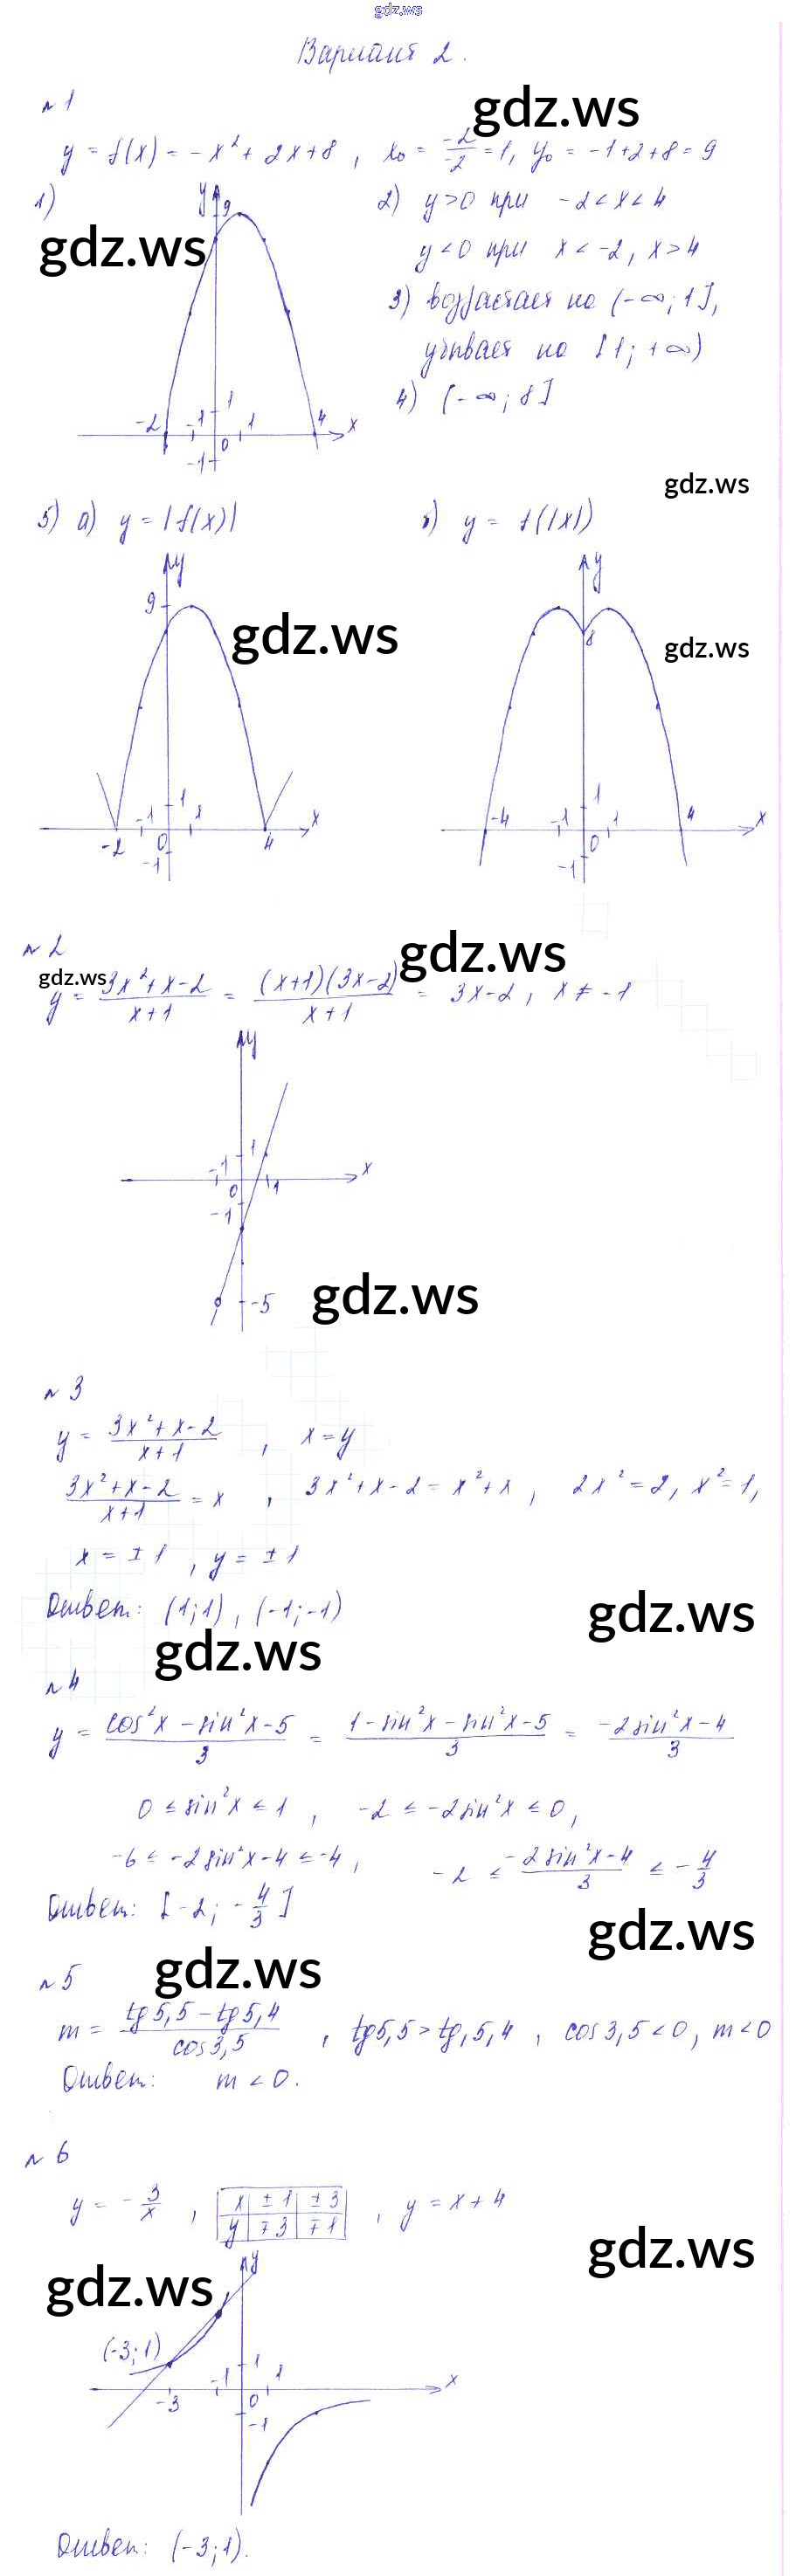 gdz.ws
Вариант 2.
№1
gdz.ws
y = f(x) = -x² + 2x + 8 , x₀ = -2/-2 = 1, y₀ = -1+2+8 = 9
1) y 9 2) y > 0 при -2 < x < 4
gdz.ws
y < 0 при x < -2, x > 4
3) возрастает на (-∞; 1],
убывает на [1; +∞)
4) (-∞; 8]
-2 -1 1 0 1 4 x
-1
gdz.ws
5) а) y = |f(x)| б) y = f(|x|)
y y
9
gdz.ws
8 gdz.ws
-1 1 1 x -4 -1 1 1 4 x
-2 0 4 0
-1 -1
№2
gdz.ws
gdz.ws
y = (3x²+x-2)/(x+1) = (x+1)(3x-2)/(x+1) = 3x-2, x ≠ -1
y
-1 1 x
0 1
-1
-5
gdz.ws
№3
y = (3x²+x-2)/(x+1) , x = y
(3x²+x-2)/(x+1) = x , 3x²+x-2 = x²+x , 2x² = 2, x² = 1,
x = ±1 , y = ±1
Ответ: (1;1), (-1;-1)
gdz.ws
gdz.ws
№4
y = (cos²x - sin²x - 5)/3 = (1 - sin²x - sin²x - 5)/3 = (-2sin²x - 4)/3
0 ≤ sin²x ≤ 1 , -2 ≤ -2sin²x ≤ 0,
-6 ≤ -2sin²x - 4 ≤ -4 , -2 ≤ (-2sin²x - 4)/3 ≤ -4/3
Ответ: [-2; -4/3]
gdz.ws
gdz.ws
№5
m = (tg 5,5 - tg 5,4)/cos 3,5 , tg 5,5 > tg, 5,4 , cos 3,5 < 0, m < 0
Ответ: m < 0.
№6
y = -3/x , x ±1 ±3 , y = x + 4
y ∓3 ∓1
gdz.ws
gdz.ws
y
(-3;1)
-1 1 1 x
-3 0
-1
Ответ: (-3;1).